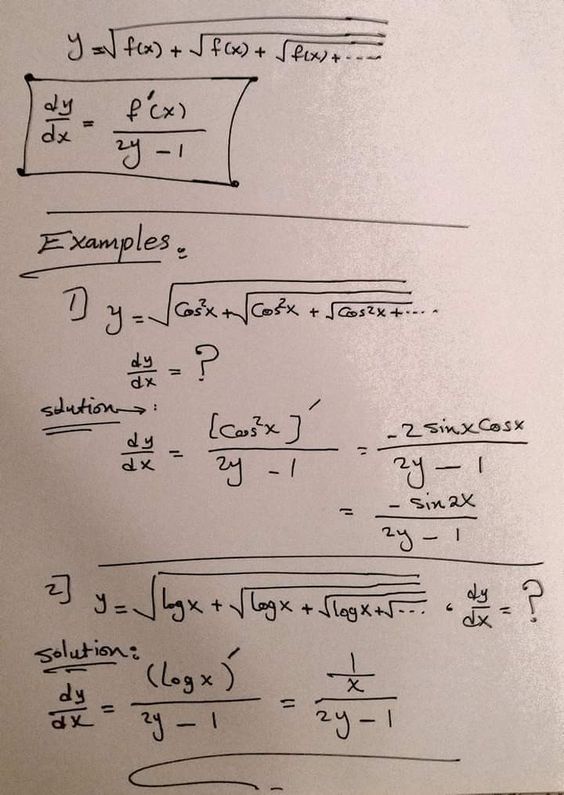 y = √f(x) + √f(x) + √f(x) + ....
dy/dx = f'(x)/2y - 1
Examples:
1] y = √Cos²x + √Cos²x + √Cos²x + ....
dy/dx = ?
solution → :
dy/dx = [Cos²x]'/2y - 1 = -2 sinx Cosx/2y - 1
= - sin2x/2y - 1
2] y = √logx + √logx + √logx + √... . dy/dx = ?
solution:
dy/dx = (Logx)'/2y - 1 = 1/x/2y - 1